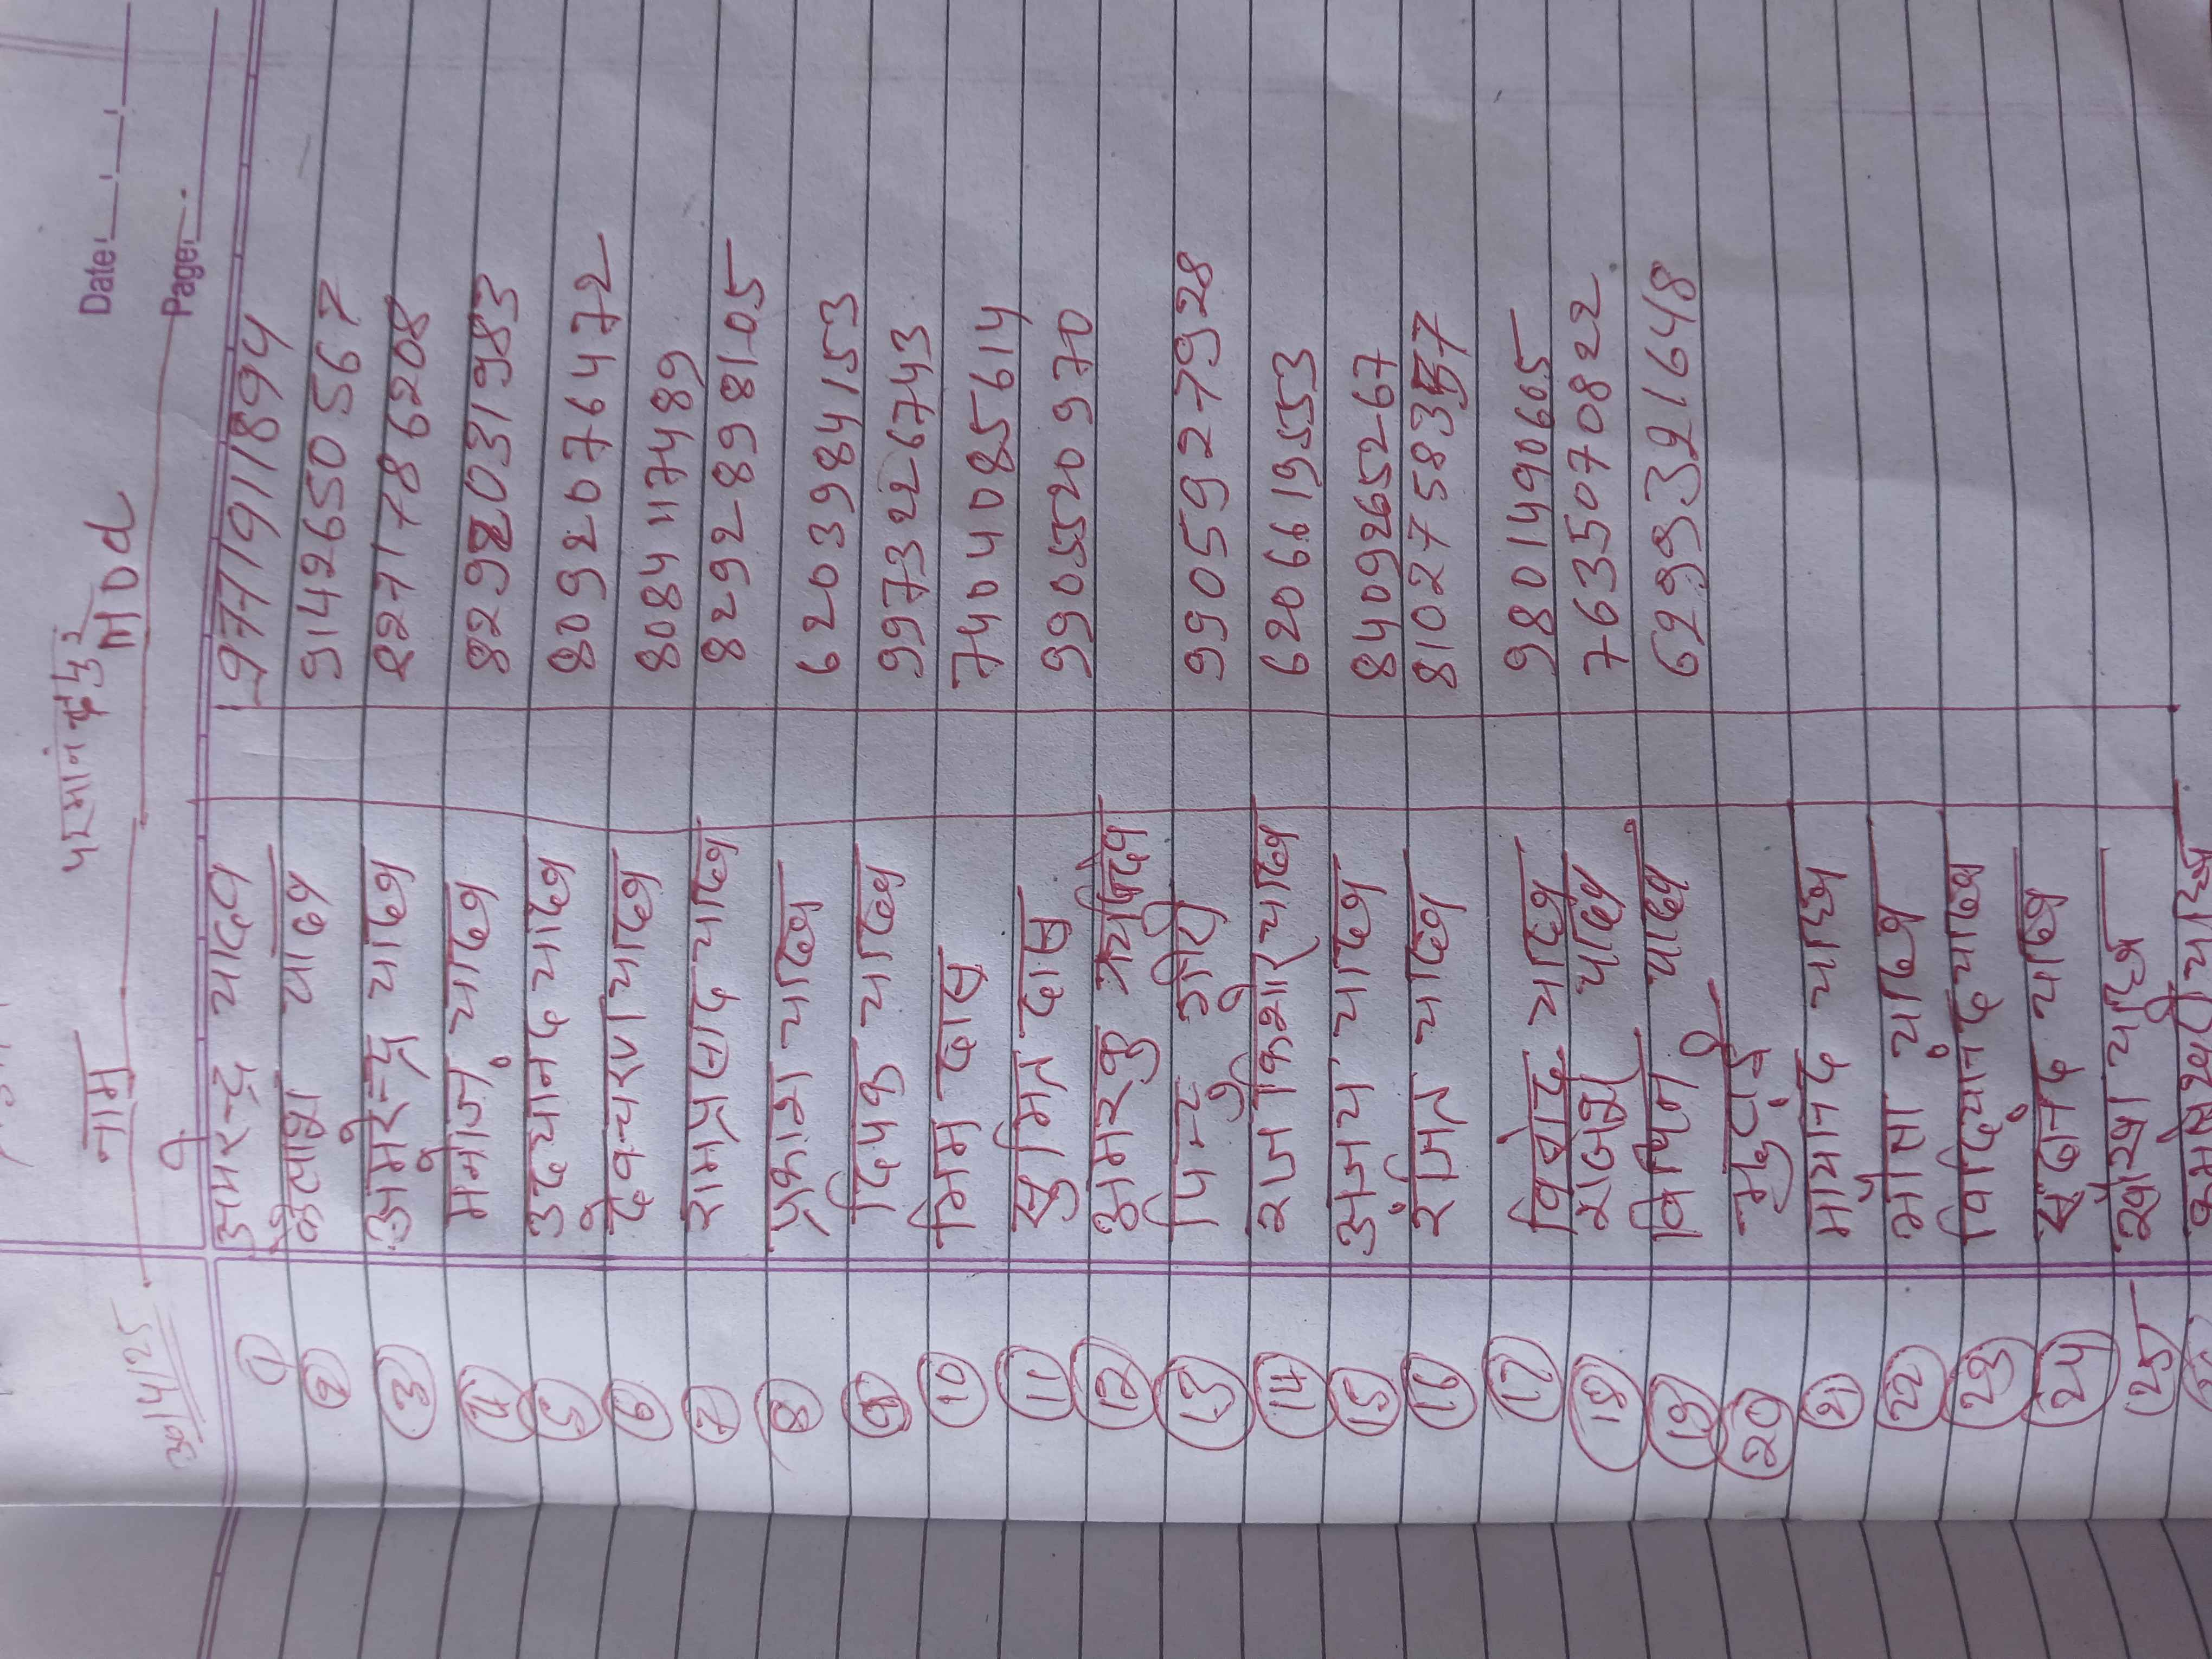 Date:
Page:
30/4/25 नाम परमानंदपुर Mod
① अमरेन्द्र यादव 9771911894
② कैलाश यादव 9142650567
③ अमरेन्द्र यादव 8271786208
④ मनोज यादव 82982031983
⑤ उदयानन्द यादव 8092076472
⑥ देवचरण यादव 8084117489
⑦ रामप्रसाद यादव 8292898105
⑧ प्रकाश यादव 6203984153
⑨ दिपक यादव 9973226743
⑩ मिम दास 7404085614
⑪ सुमित दास 9905520970
⑫ अमर कु
⑬ पिन्टू 9905927928
⑭ राज किशोर यादव 6206619553
⑮ अजय यादव 8409265267
⑯ रंजित यादव 8102758357
⑰ यादव 9801490605
⑱ राजेश यादव 7635070822
⑲ विपिन यादव 6299321648
⑳
㉑ यादव
㉒ यादव
㉓ विदियानंद यादव
㉔ यादव
㉕ यादव
यादव